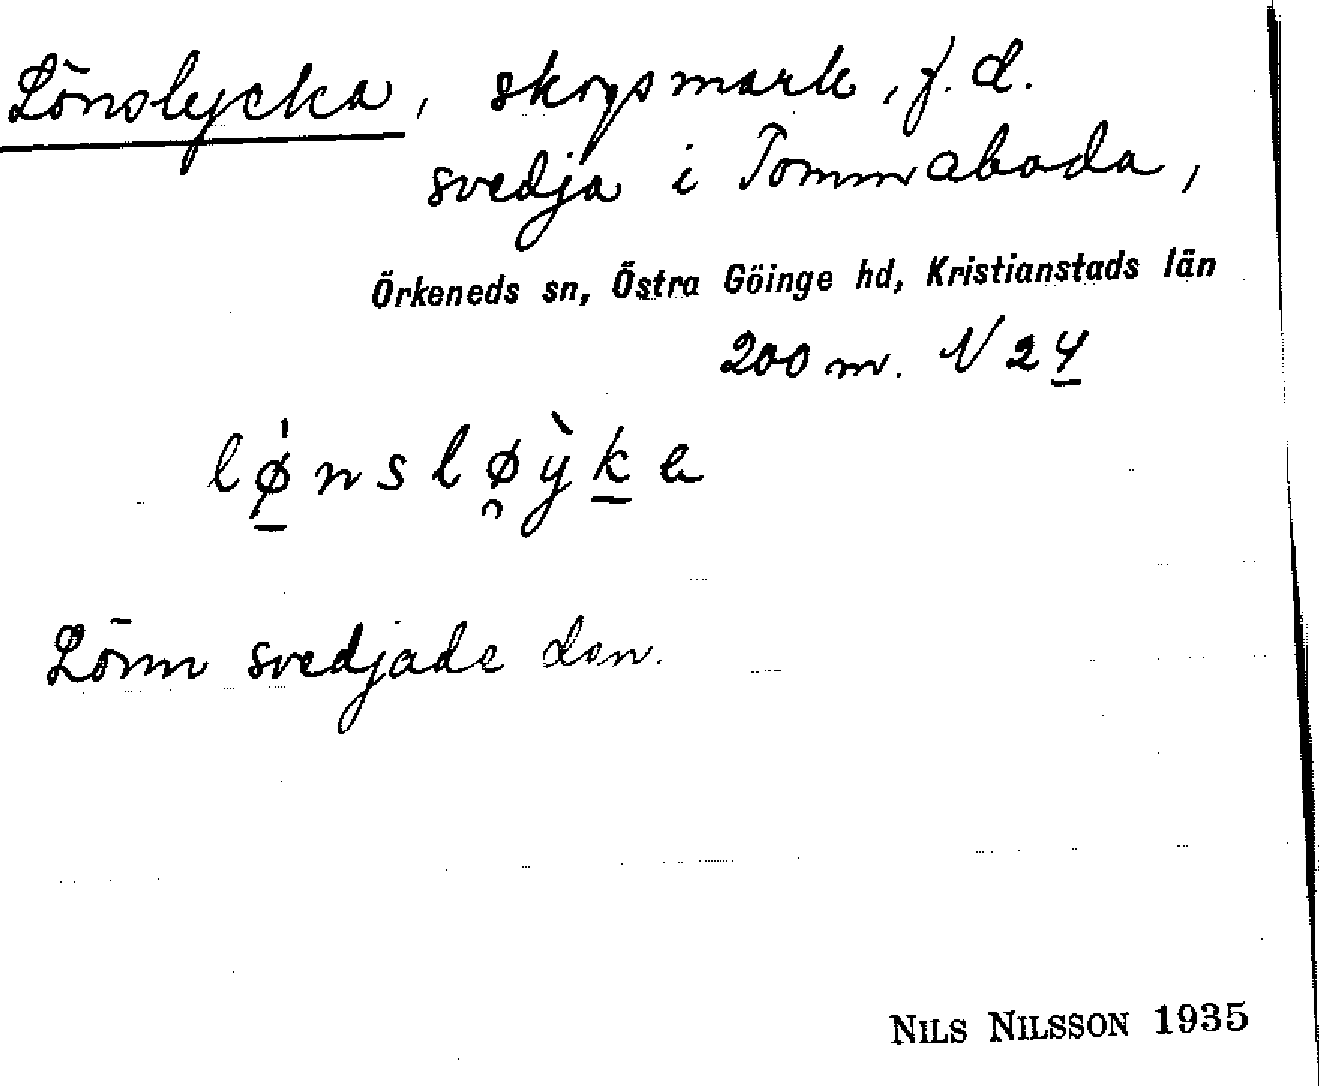 Lönslycka, skogsmark, f.d.
svedja i Tommaboda,
Örkeneds sn, Östra Göinge hd, Kristianstads län
200 m. N 24
lø̱̍nslø̯ỳ̖ḵa
Lönn svedjade den.
NILS NILSSON 1935